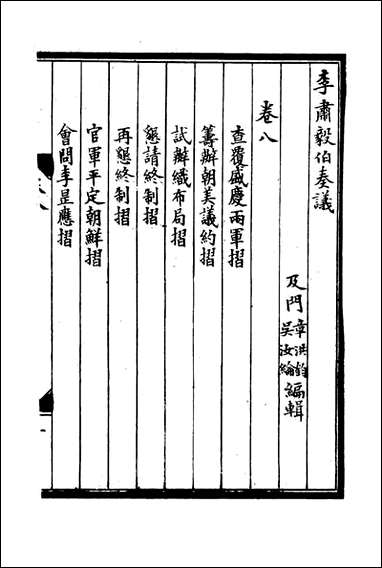 李肅毅伯奏議
及門章洪鈞吳汝綸編輯
卷八
查覆盛慶兩軍摺
籌辦朝美議約摺
試辦織布局摺
懇請終制摺
再懇終制摺
官軍平定朝鮮摺
會問李昰應摺